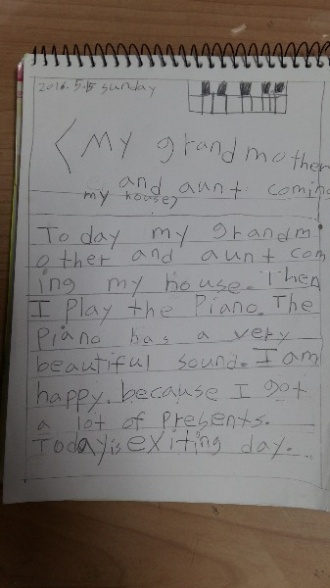 2016.5.15 sunday
<My grandmother
and aunt coming
my house>
Today my grandm
other and aunt com
ing my house. Then
I Play the Piano. The
Piano has a very
beautiful sound. I am
happy. because I got
a lot of Presents.
Today is exiting day...